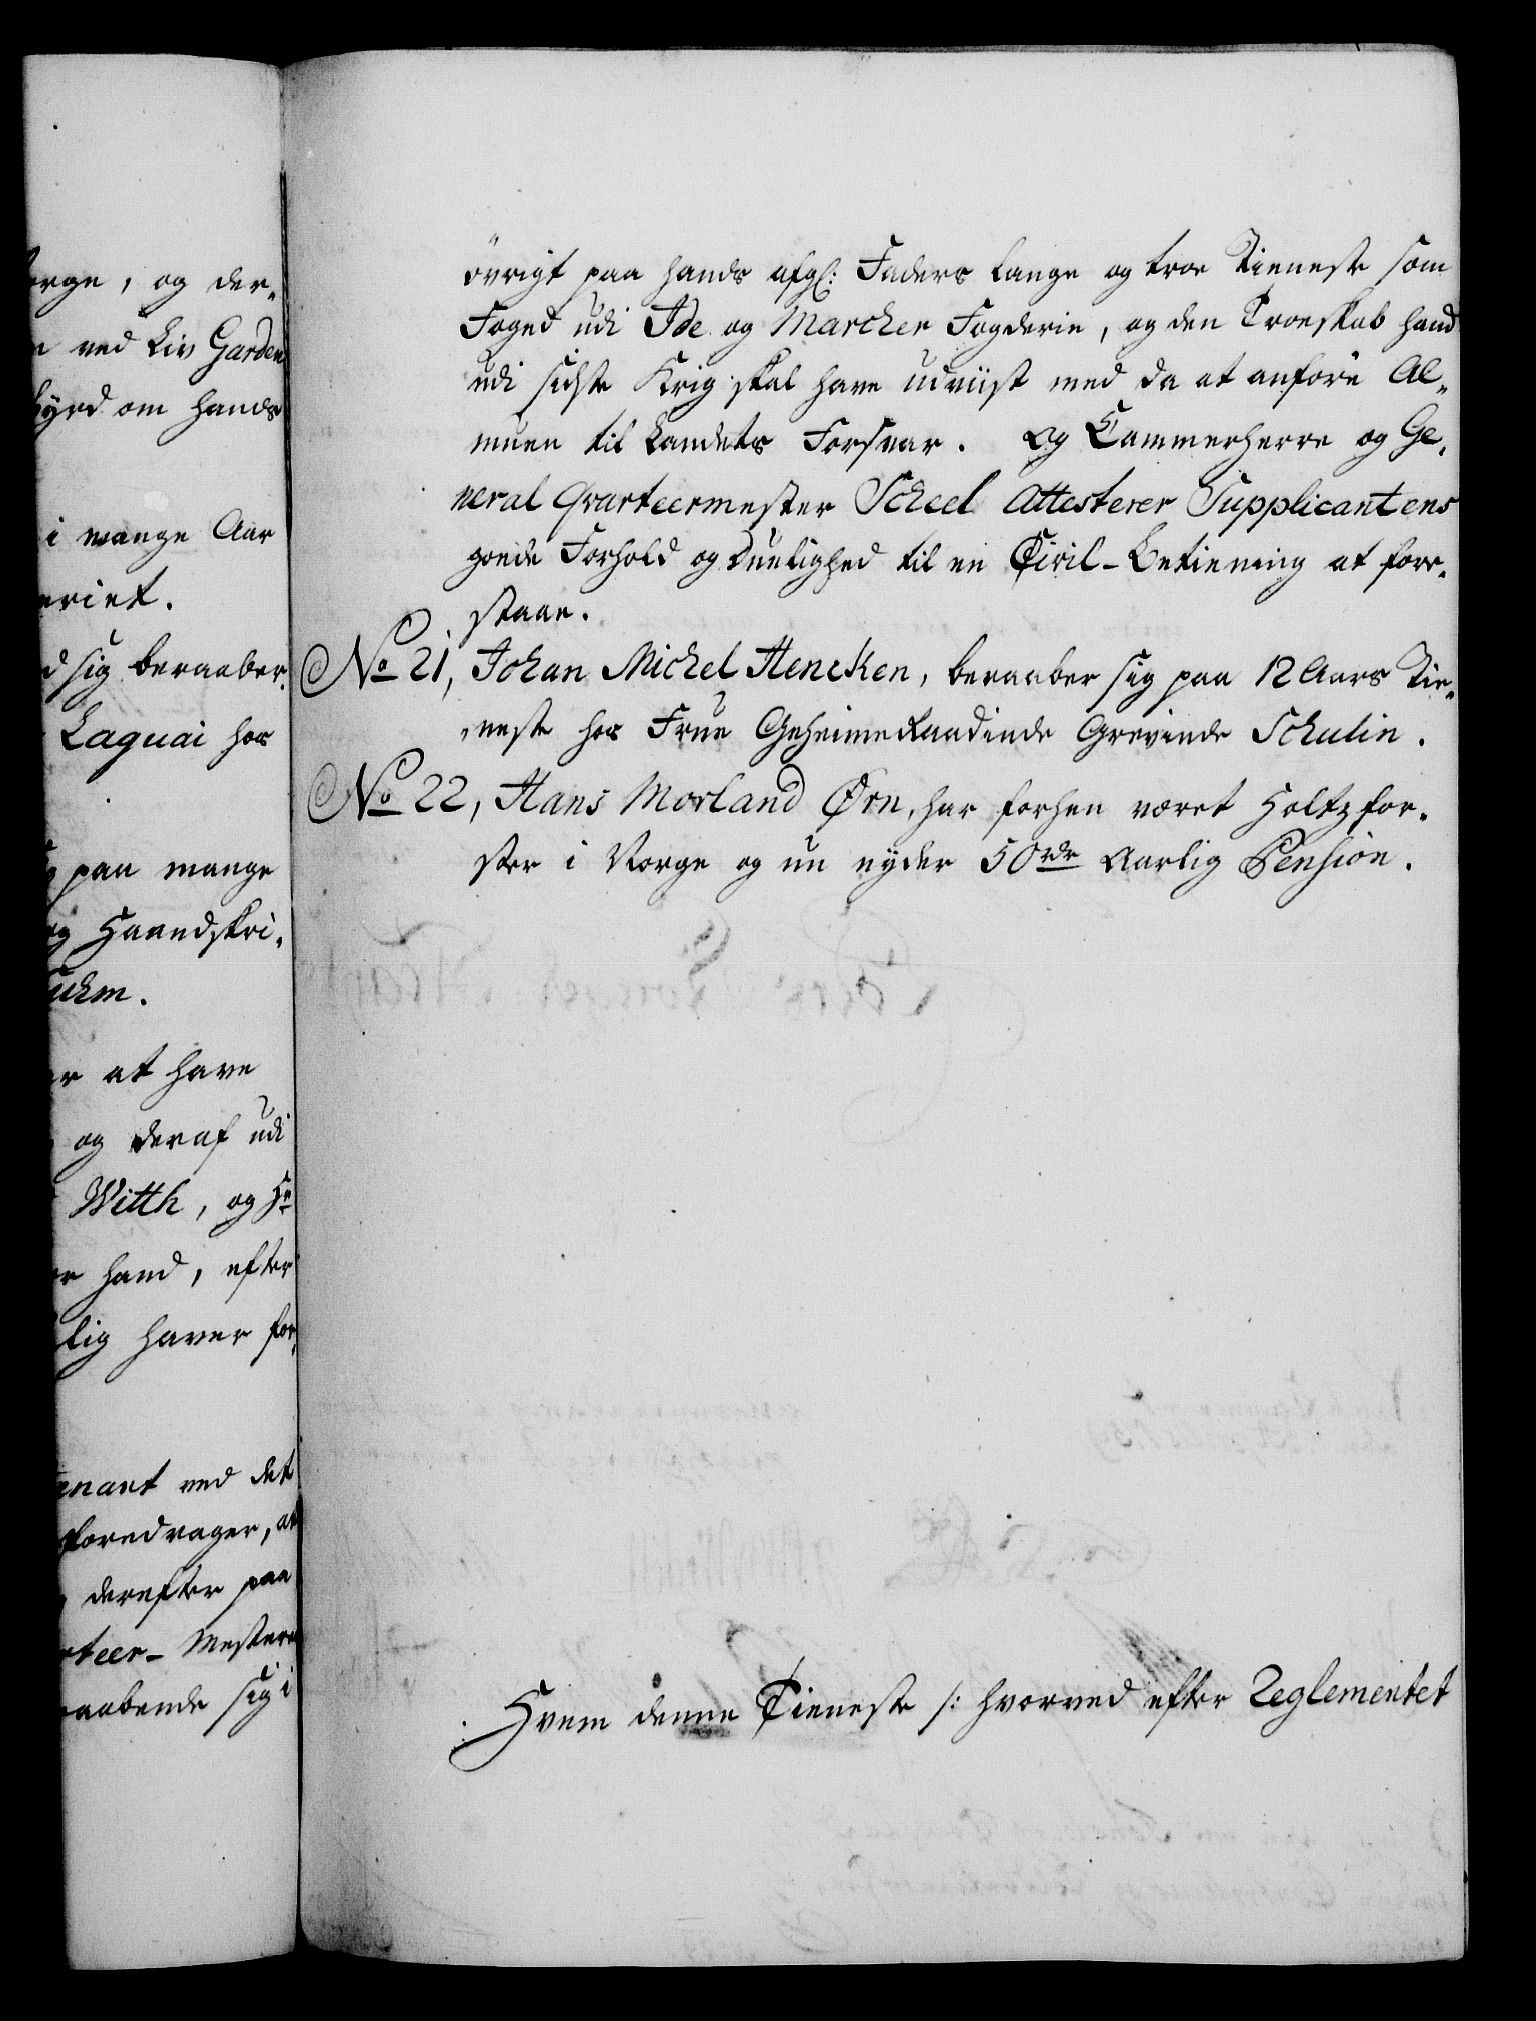 orge, og der„
n ved Liv Garden
hyrd om hands
i mange Aar
eriet.
d sig beraaber
Laquai hos
g paa mange
og Haandskri„
uckm.
er at have
og deraf udi
Witth, og Hr
er hand, efter
lig haver for„
enant ved det
foredrager, at
derefter paa
rteer- Mester
raabende sig i
övrigt paa hands afgl: Faders lange og troe Tieneste som
Foged udi Ide og Marcker Fogderie, og den Troeskab hand
udi sidste Krig skal have udviist med da at anföre Al„
muen til Landets Forsvar. Og Cammerherre og Ge„
neral Qvarteermester Scheel Attesterer Supplicantens
goede Forhold og Duelighed til en Civil-Betiening at fore„
staae.
No 21, Johan Michel Hencken, beraaber sig paa 12 Aars Tie„
„neste hos Frue Geheime Raadinde Grevinde Schulin.
No 22, Hans Morland Ørn, har forhen været Holtzför„
ster i Norge og nu nyder 50 rdr Aarlig Pension.
Hvem denne Tieneste /: hvorved efter Reglementet